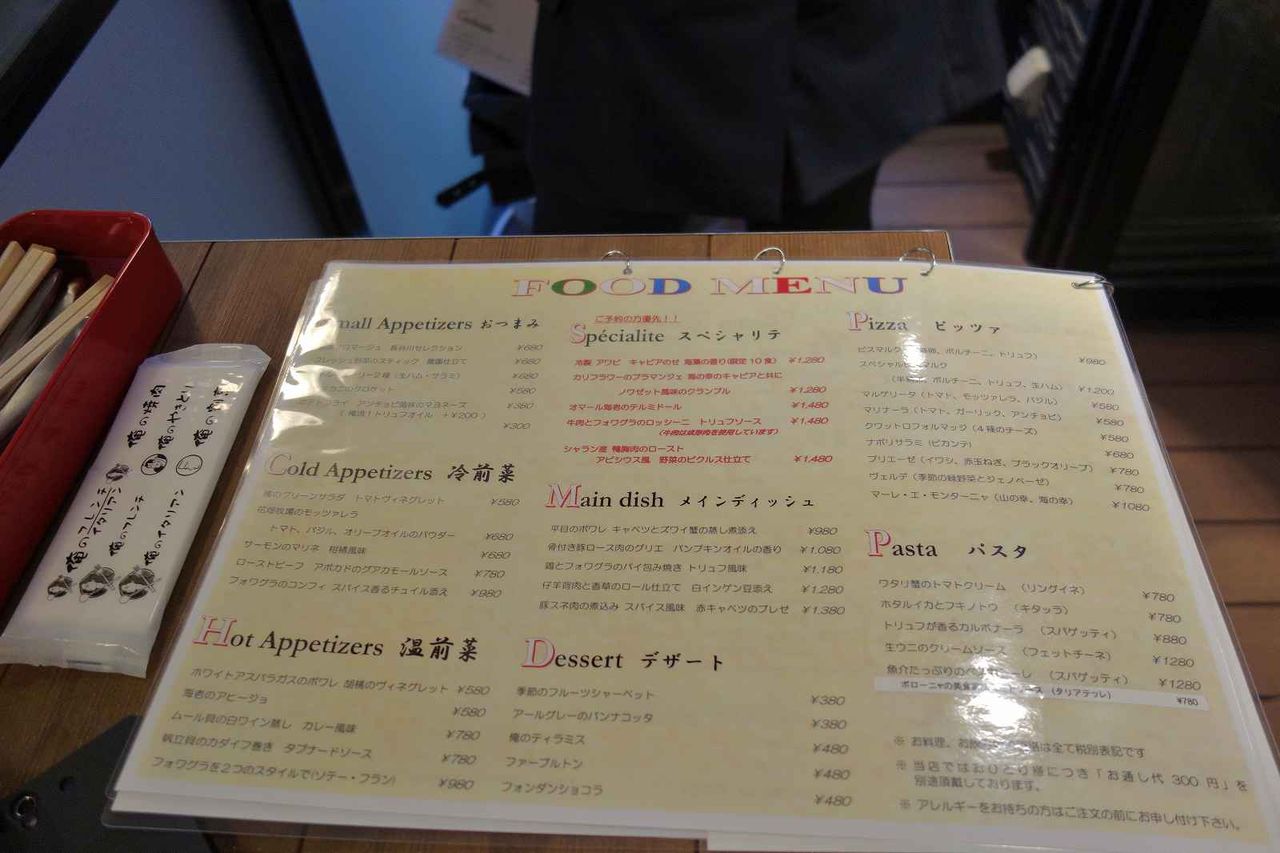 FOOD MENU
mall Appetizers おつまみ
ロマージュ 長谷川セレクション ¥680
フレッシュ野菜のスティック 農園仕立て ¥680
リー2種（生ハム・サラミ） ¥680
のクロケット ¥580
フライ アンチョビ風味のマヨネーズ ¥380
（俺流！トリュフオイル +¥200 ）
¥300
Cold Appetizers 冷前菜
のグリーンサラダ トマトヴィネグレット ¥580
花畑牧場のモッツァレラ
トマト、バジル、オリーブオイルのパウダー ¥680
サーモンのマリネ 柑橘風味 ¥680
ローストビーフ アボカドのグアカモールソース ¥780
フォワグラのコンフィ スパイス香るチュイル添え ¥980
Hot Appetizers 温前菜
ホワイトアスパラガスのポワレ 胡桃のヴィネグレット ¥580
海老のアヒージョ ¥580
ムール貝の白ワイン蒸し カレー風味 ¥780
帆立貝のカダイフ巻き タプナードソース ¥780
フォワグラを2つのスタイルで(ソテー・フラン) ¥980
ご予約の方優先！！
Spécialite スペシャリテ
冷製 アワビ キャビアのせ 海藻の香り(限定10食) ¥1,280
カリフラワーのブラマンジェ 海の幸のキャビアと共に
ノワゼット風味のクランブル ¥1,280
オマール海老のテルミドール ¥1,480
牛肉とフォワグラのロッシーニ トリュフソース ¥1,480
(牛肉は成形肉を使用しています)
シャラン産 鴨胸肉のロースト
アピシウス風 野菜のピクルス仕立て ¥1,480
Main dish メインディッシュ
平目のポワレ キャベツとズワイ蟹の蒸し煮添え ¥980
骨付き豚ロース肉のグリエ パンプキンオイルの香り ¥1,080
鶏とフォワグラのパイ包み焼き トリュフ風味 ¥1,180
仔羊背肉と香草のロール仕立て 白インゲン豆添え ¥1,280
豚スネ肉の煮込み スパイス風味 赤キャベツのブレゼ ¥1,380
Dessert デザート
季節のフルーツシャーベット ¥380
アールグレーのパンナコッタ ¥380
俺のティラミス ¥480
ファーブルトン ¥480
フォンダンショコラ ¥480
Pizza ピッツァ
ビスマルク 卵、ポルチーニ、トリュフ） ¥980
スペシャルビスマルク
（半 、ポルチーニ、トリュフ、生ハム） ¥1,200
マルゲリータ（トマト、モッツァレラ、バジル） ¥580
マリナーラ（トマト、ガーリック、アンチョビ） ¥580
クワットロフォルマッジ（4種のチーズ） ¥580
ナポリサラミ（ピカンテ） ¥680
プリエーゼ（イワシ、赤玉ねぎ、ブラックオリーブ） ¥780
ヴェルデ（季節の緑野菜とジェノベーゼ） ¥780
マーレ・エ・モンターニャ（山の幸、海の幸） ¥1080
Pasta パスタ
ワタリ蟹のトマトクリーム （リングイネ） ¥780
ホタルイカとフキノトウ （キタッラ） ¥780
トリュフが香るカルボナーラ （スパゲッティ） ¥880
生ウニのクリームソース （フェットチーネ） ¥1280
魚介たっぷりのペ ーレ （スパゲッティ） ¥1280
ボローニャの美食 ソース （タリアテッレ） ¥780
※ お料理、お飲 格は全て税別表記です
※ 当店ではおひとり様につき「お通し代 300 円」を
別途頂戴しております。
※ アレルギーをお持ちの方はご注文の前にお申し付け下さい。
俺の焼肉
俺のやきとり
俺の割烹
俺のフレンチ
俺のイタリアン
俺のフレンチ
俺のイタリアン